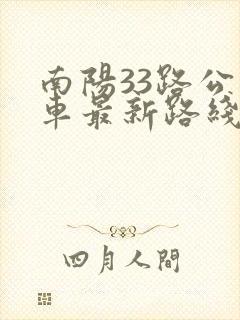 南陽33路公
車最新路綫
四月人間